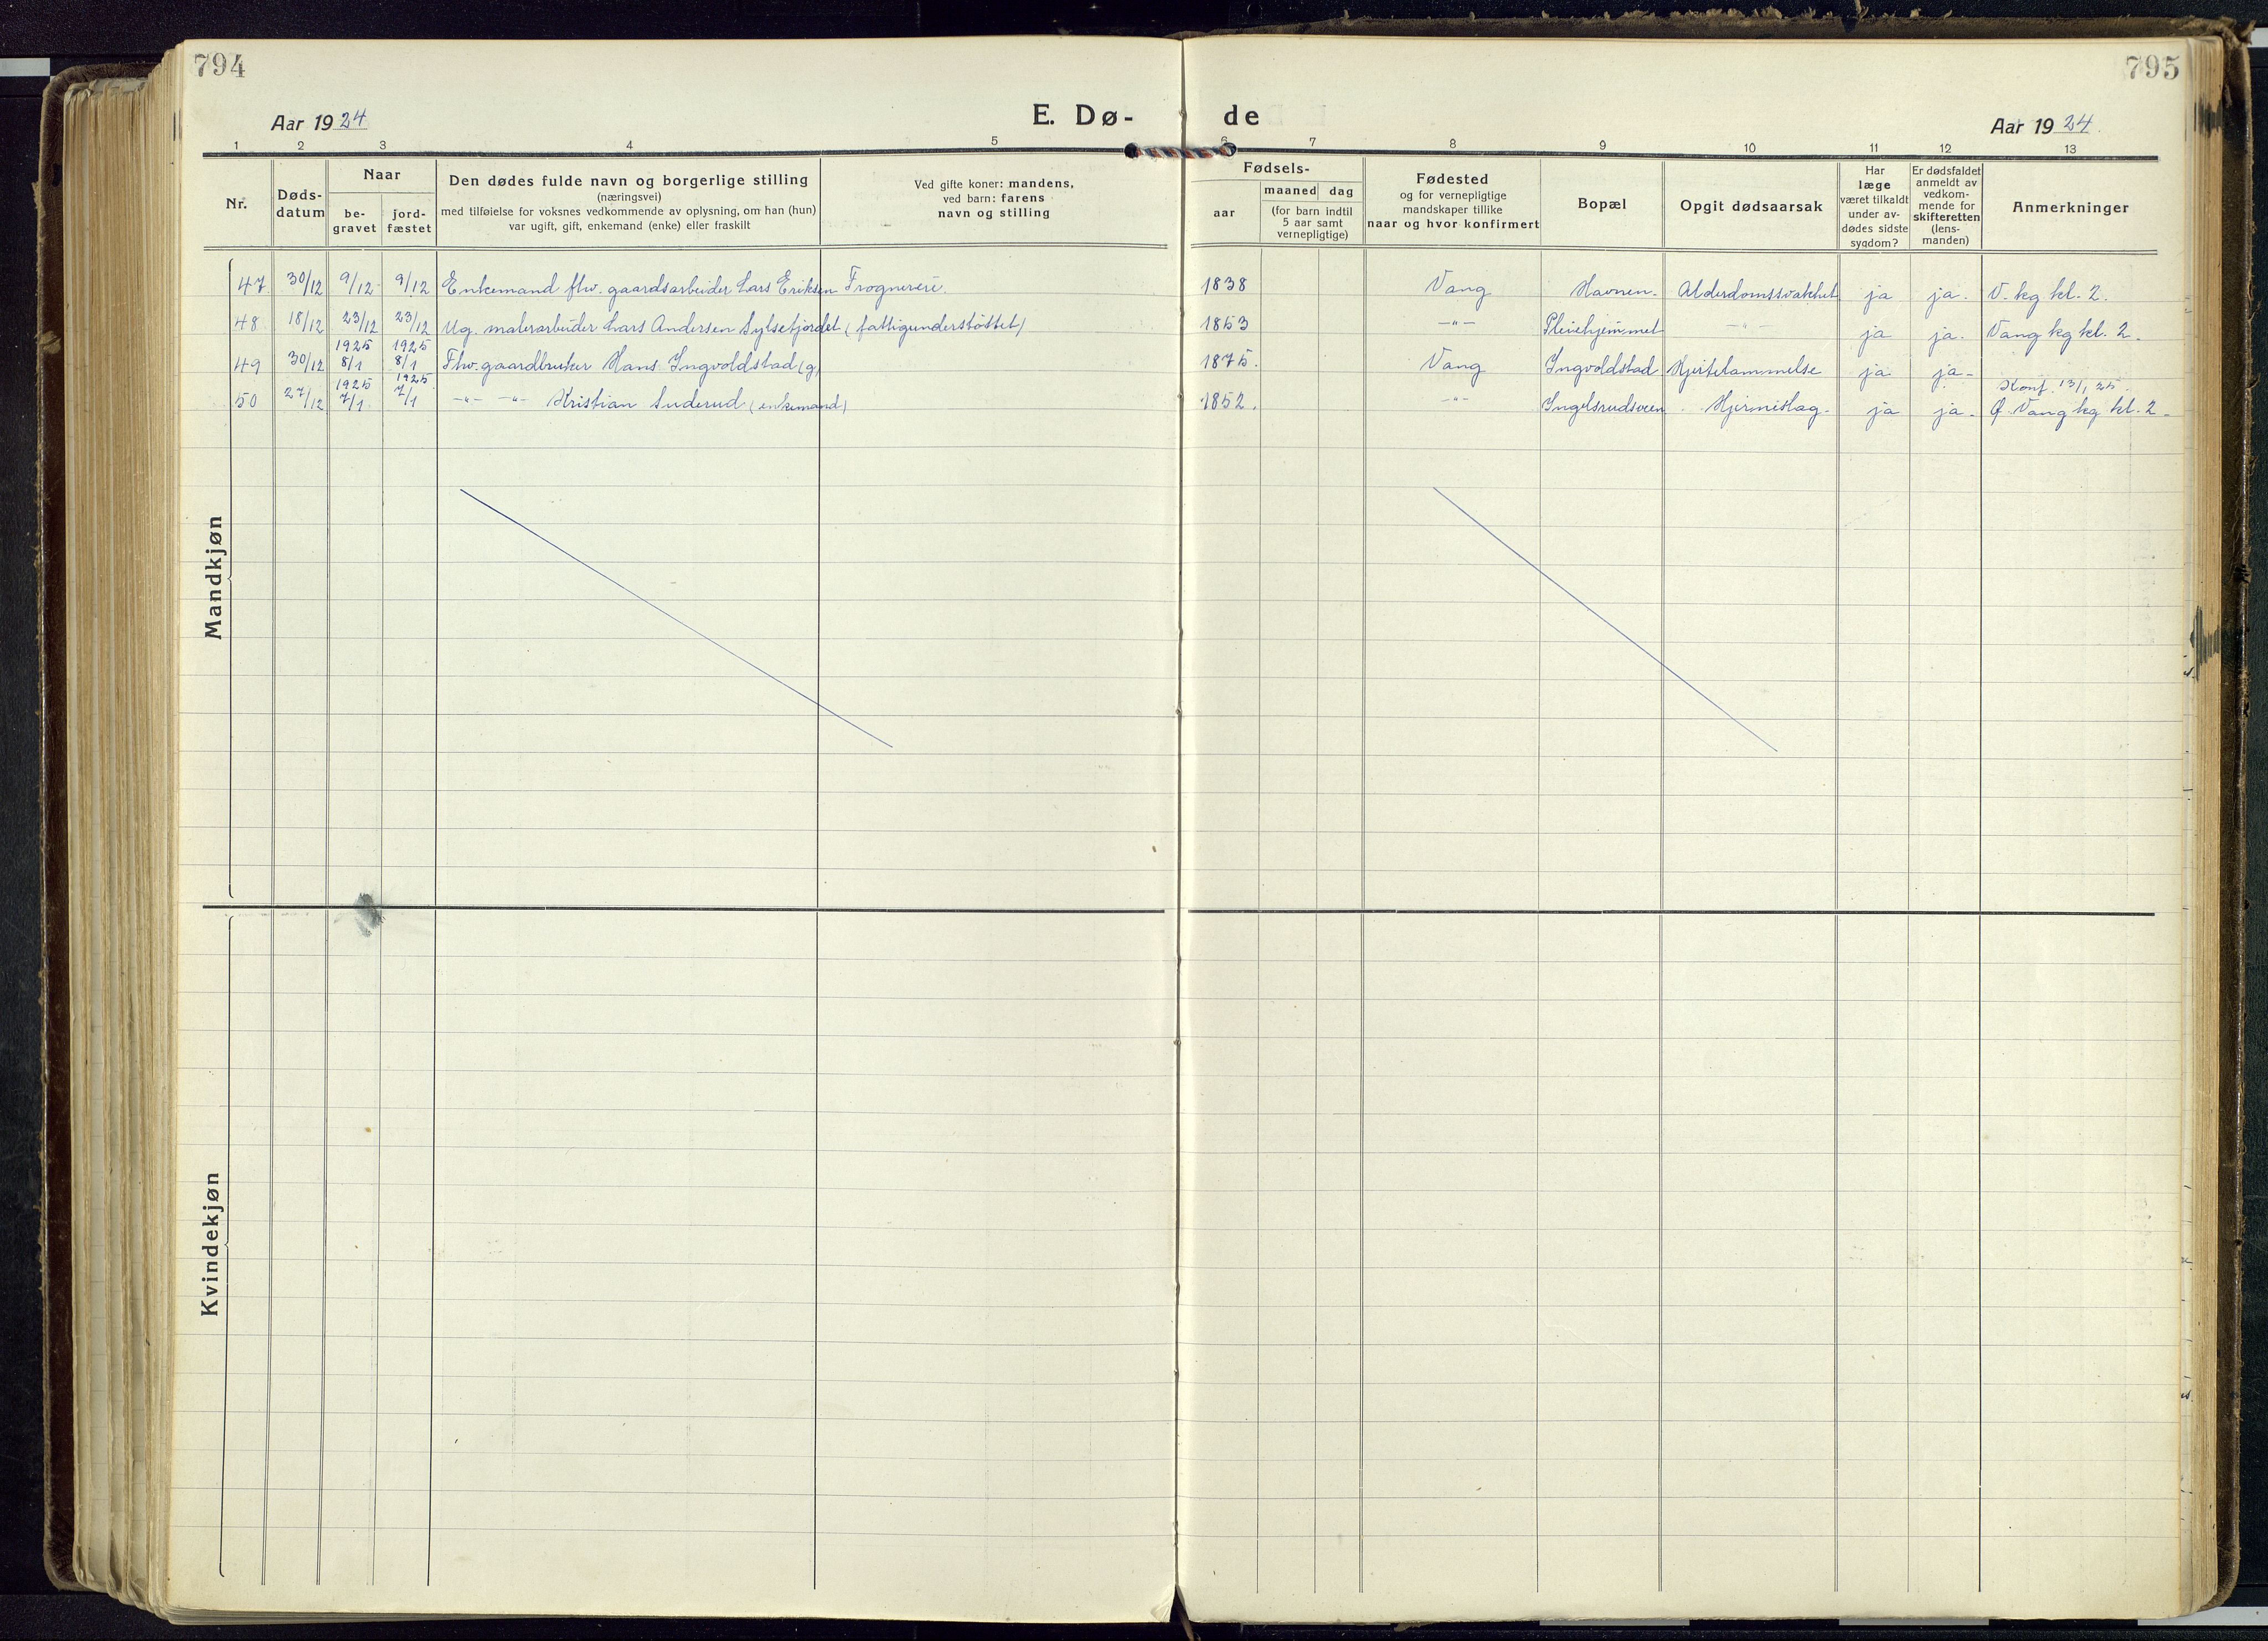 794
795
Aar 1924
E. Dø-
de
Aar 1924.
1 2 3 4 5 6 7 8 9 10 11 12 13
Nr.
Døds-
datum
Naar
be-
gravet
jord-
fæstet
Den dødes fulde navn og borgerlige stilling
(næringsvei)
med tilføielse for voksnes vedkommende av oplysning, om han (hun)
var ugift, gift, enkemand (enke) eller fraskilt
Ved gifte koner: mandens,
ved barn: farens
navn og stilling
Fødsels-
aar
maaned dag
(for barn indtil
5 aar samt
vernepligtige)
Fødested
og for vernepligtige
mandskaper tillike
naar og hvor konfirmert
Bopæl
Opgit dødsaarsak
Har
læge
været tilkaldt
under av-
dødes sidste
sygdom?
Er dødsfaldet
anmeldt av
vedkom-
mende for
skifteretten
(lens-
manden)
Anmerkninger
Mandkjøn
47 30/12 9/12 9/12 Enkemand fhv. gaardsarbeider Lars Eriksen 1838 Vang Havnen. Alderdomssvakhet ja ja. V. kg kl. 2.
48 18/12 23/12 23/12 Ug. malerarbeider Lars Andersen (fattigunderstøttet) 1853 -"- Pleiehjemmet -"- ja ja. Vang kg kl. 2.
1925 1925
49 30/12 8/1 8/1 Fhv. gaardbruker Hans Ingvoldstad (g) 1875. Vang Ingvoldstad Hjertelammelse ja ja-
1925 1925 13/1 25.
50 27/12 7/1 7/1 -"- -"- Kristian Suderud (enkemand) 1852. -"- Ingelsrudsveen ja ja- Vang kg kl. 2-
Kvindekjøn